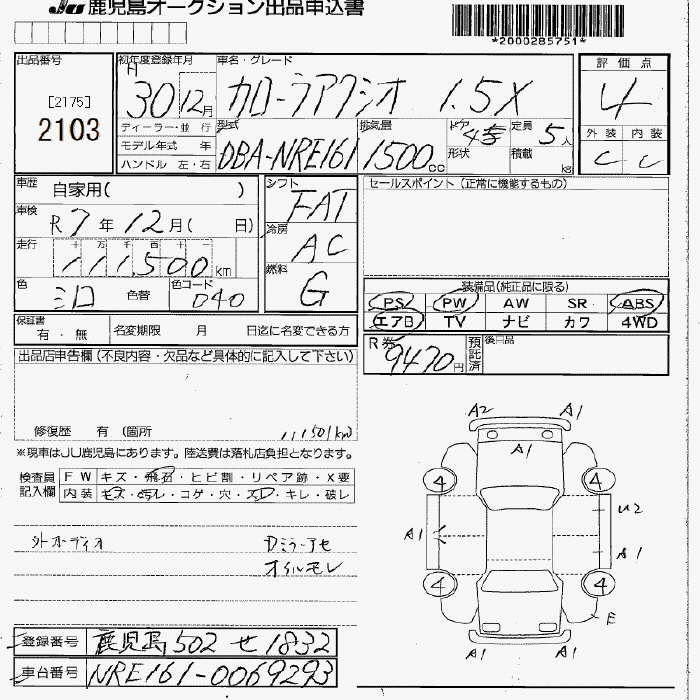 JU 鹿児島オークション出品申込書
*2000285751*
出品番号
[2175]
2103
初年度登録年月
H 30 12月
車名・グレード
カローラアクシオ 1.5X
ディーラー・並行
モデル年式 年
ハンドル 左・右
型式
DBA-NRE161
排気量
1500cc
ドア
形状
定員 5人
積載 kg
評価点
4
外装 内装
C C
車歴 自家用( )
車検 R7年12月( 日)
走行 十 万 千 百 十 一
111,500km
色 シロ 色替 カラーコード 040
シフト FAT
冷房 AC
燃料 G
セールスポイント(正常に機能するもの)
装備品(純正品に限る)
PS PW AW SR ABS
エアB TV ナビ カワ 4WD
保証書 有・無 名変期限 月 日迄に名変できる方
R券 9470円 預託済 後日品
出品店申告欄(不良内容・欠品など具体的に記入して下さい)
修復歴 有 (箇所 111501km)
※現車はJU鹿児島にあります。陸送費は落札店負担となります。
検査員記入欄
FW キズ・飛石・ヒビ割・リペア跡・X要
内装 キズ・汚レ・コゲ・穴・スレ・キレ・破レ
外オーディオ
Dミラーアセ
オイルモレ
A2 A1
A1
4 4
U2
A1 A1
4 4
E
A1 A1
登録番号 鹿児島502せ1832
車台番号 NRE161-0069293